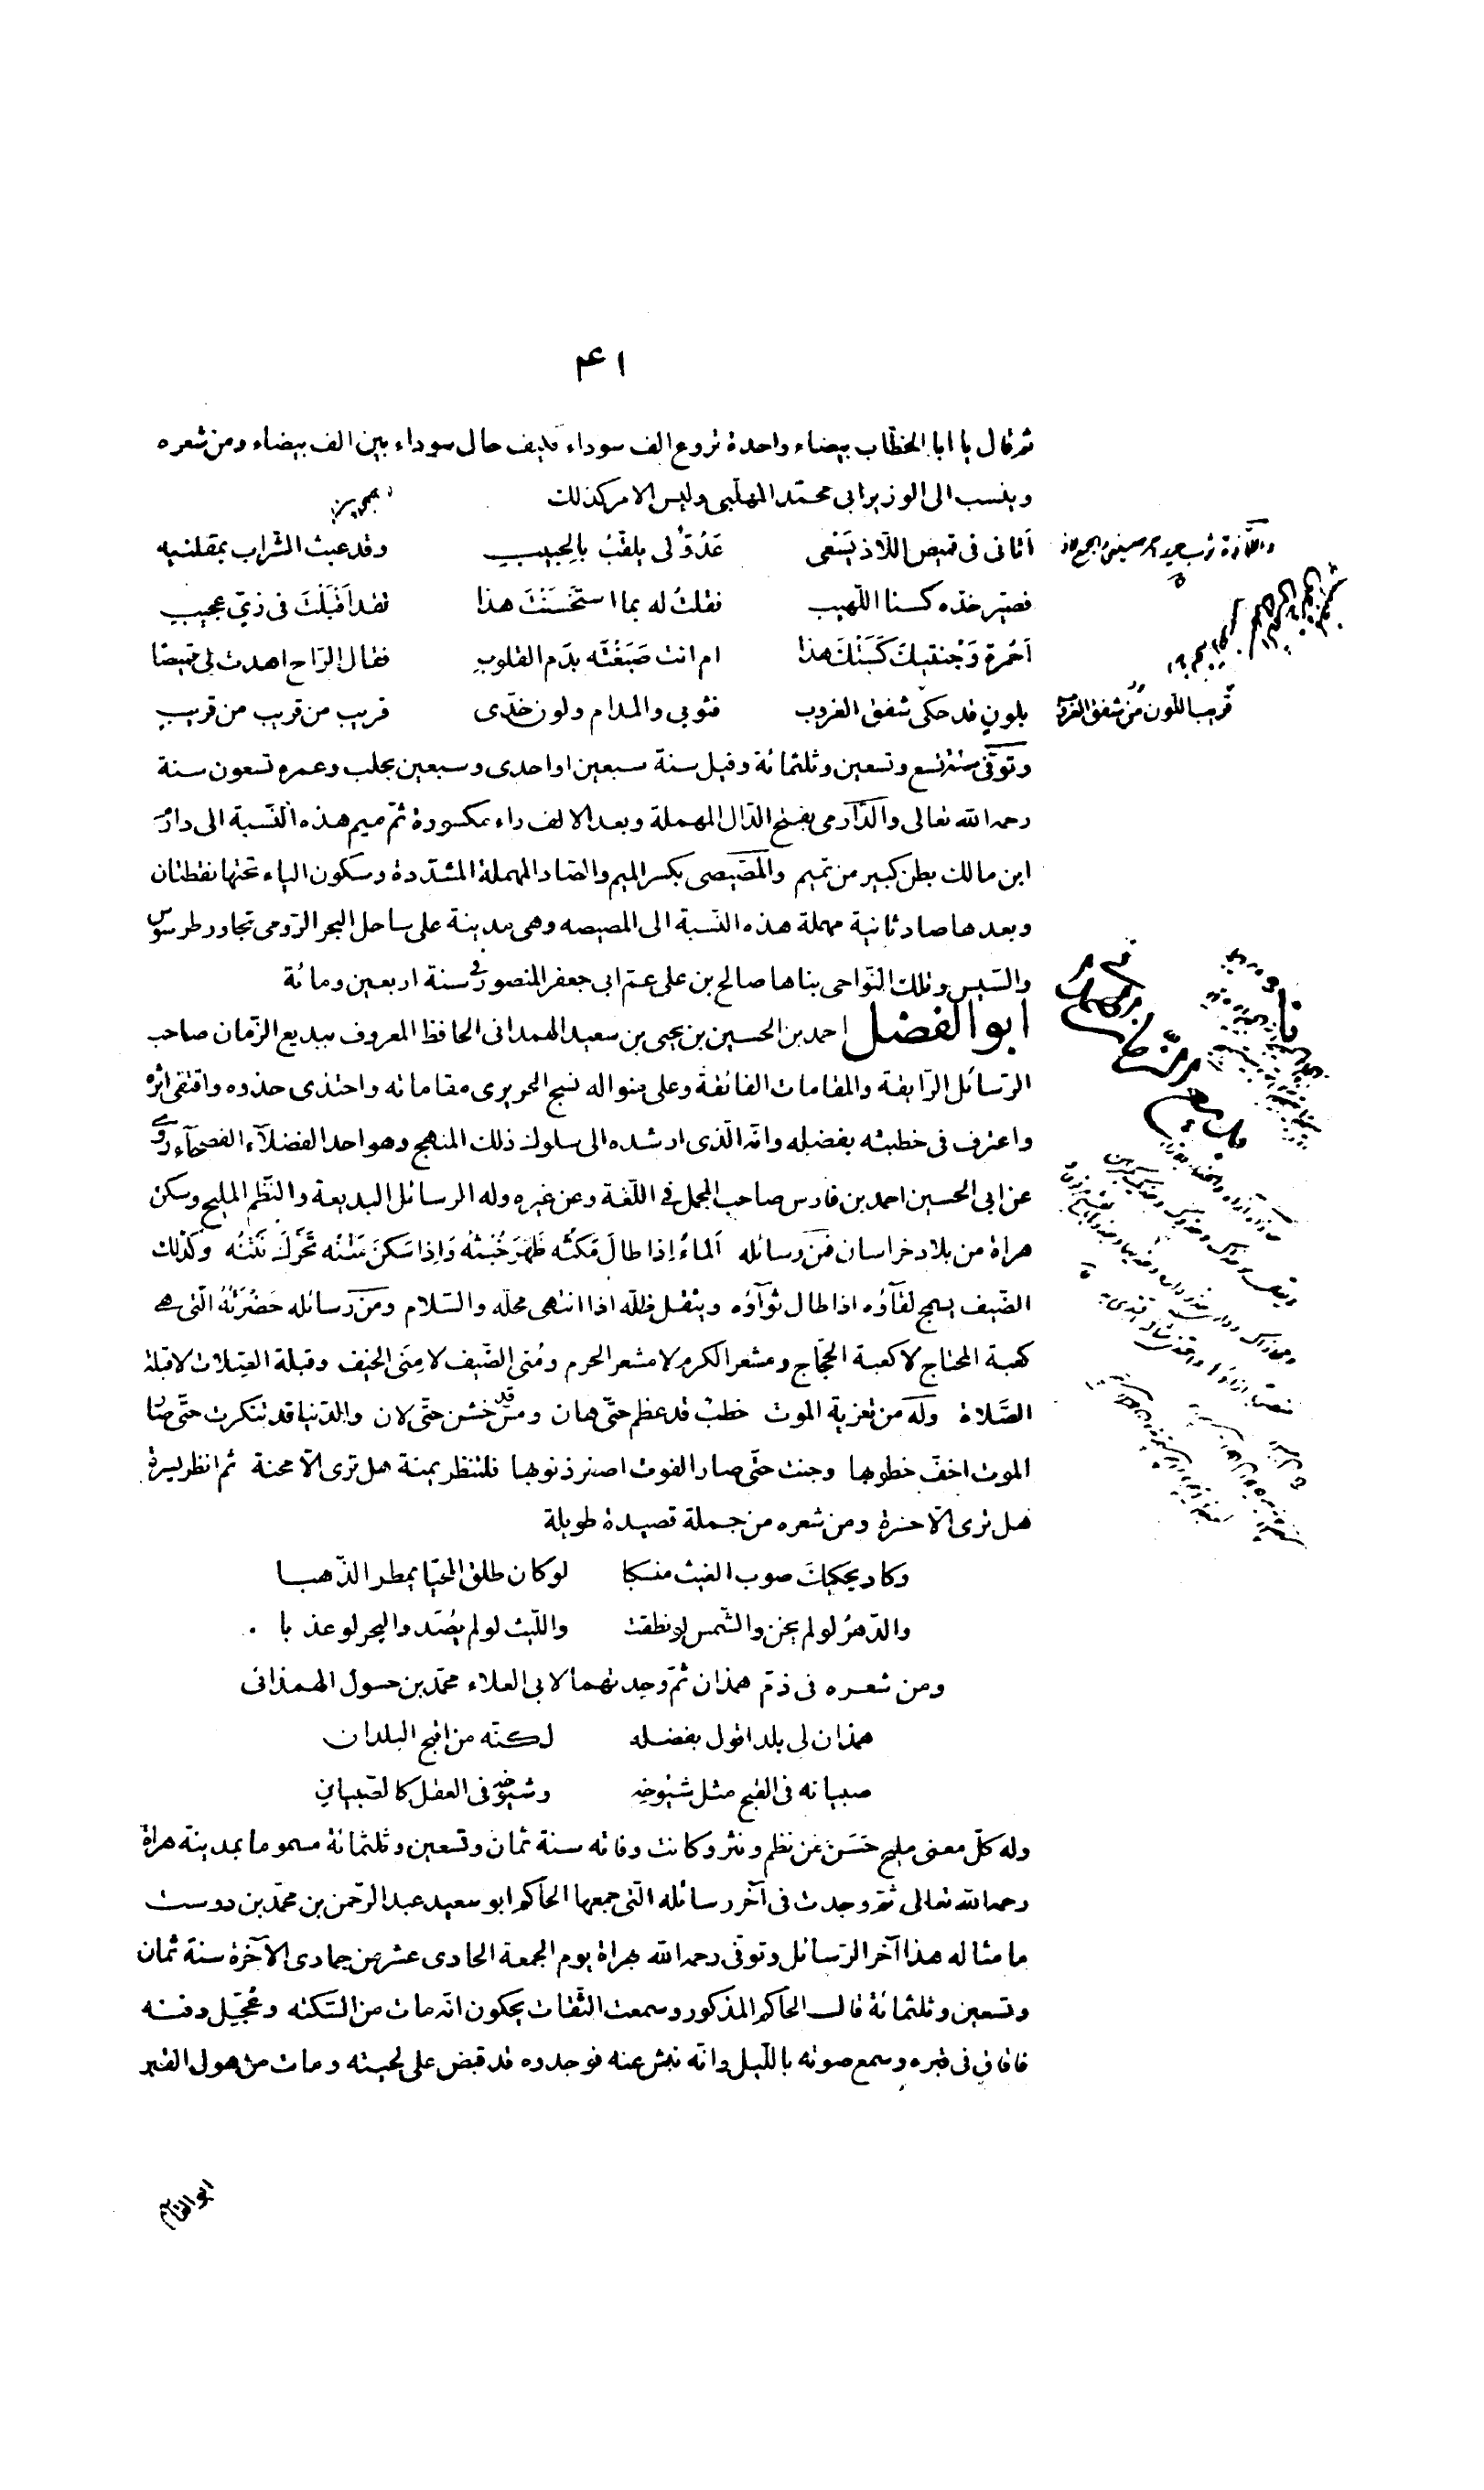 ۴۱
ثم قال يا ابا الخطّاب بيضاء واحدة تروع الف سوداء فكيف حال سوداء بين الف بيضاء ومن شعره
وينسب الى الوزير ابى محمّد المهلّبى وليس الامر كذلك
أتانى فى قميص اللّاذ يَسْعى عَدُوٌّ لى يلقّبُ بالحبيبِ وقد عبث الشراب بمقلتيه
فصيّر خدّه كسنا اللّهيب فقلتُ له بما استَحْسَنْتَ هذا لقد اَقْبَلْتَ فى زىّ عجيبِ
أحُمرة وَجْنتيكَ كَسَتْكَ هذا ام انت صَبَغْتَه بدَم القلوبِ فقال الرّاح اهدت لى قميصًا
بلونٍ قد حكى شفق الغروب فثوبى والمدام ولون خدّى قريب من قريب من قريبِ
وتوفّى سنة تسع وتسعين وثلثمائة وقيل سنة سبعين او احدى وسبعين بحلب وعمره تسعون سنة
رحمه الله تعالى والدّارمى بفتح الدّال المهملة وبعد الالف راء مكسورة ثمّ ميم هذه النّسبة الى دارم
ابن مالك بطن كبير من تميم والمصّيصى بكسر الميم والصّاد المهملة المشدّدة وسكون الياء تحتها نقطتان
وبعدها صاد ثانية مهملة هذه النّسبة الى المصيصه وهى مدينة على ساحل البحر الرّومى تجاور طرسوس
والسّيس وتلك النّواحى بناها صالح بن على عمّ ابى جعفر المنصور فى سنة اربعين ومائة
ابو الفضل احمد بن الحسين بن يحيى بن سعيد الهمدانى الحافظ المعروف ببديع الزّمان صاحب
الرّسائل الرّايقة والمقامات الفائقة وعلى منواله نسج الحريرى مقاماته واحتذى حذوه واقتفى اثره
واعترف فى خطبته بفضله وانّه الّذى ارشده الى سلوك ذلك المنهج وهو احد الفضلآء الفصحآء روى
عن ابى الحسين احمد بن فارس صاحب المجمل فى اللّغة وعن غيره وله الرسائل البديعة والنّظم المليح وسكن
هراة من بلاد خراسان فمن رسائله اَلماءُ اِذا طالَ مَكثُه ظَهَرَ خُبثُهُ وَاِذا سَكنَ مَتْنُه تَحَرَّكَ نَتْنُه وكذلك
الضّيف يسمج لقآؤه اذا طال ثوآؤه ويثقل ظلّه اذا انتهى محلّه والسّلام ومن رسائله حَضْرَتُهُ الّتى هى
كعبة المحتاج لا كعبة الحجّاج ومشعر الكرم لا مشعر الحرم ومُنى الضّيف لا مِنَى الخيف وقبلة الصّلات لا قبلة
الصّلاة وله من تعزية الموت خطب قد عظم حتّى هان ومسّ قد خشن حتّى لان والدّنيا قد تنكرت حتّى صار
الموت اخفّ خطوبها وجنت حتّى صار الفوت اصغر ذنوبها فلتنظر يمنة هل ترى الّا محنة ثم انظر يسرة
هل ترى الّا حسرة ومن شعره من جملة قصيدة طويلة
وكاد يحكيك صوب الغيث منسكبا لو كان طلق المحيّا يمطر الذّهبا
والدّهرُ لو لم يخن والشّمس لو نطقت واللّيث لو لم يُصَد والبحر لو عذبا
ومن شعره فى ذمّ همذان ثمّ وجدتهما لابى العلاء محمّد بن حسول الهمذانى
همذان لى بلد اقول بفضله لكنّه من اقبح البلدان
صبيانه فى القبح مثل شيوخه وشيوخه فى العقل كالصّبيان
وله كلّ معنى مليح حَسَن من نظم ونثر وكانت وفاته سنة ثمان وتسعين وثلثمائة مسموما بمدينة هراة
رحمه الله تعالى ثمّ وجدت فى آخر رسائله الّتى جمعها الحاكم ابو سعيد عبد الرّحمن بن محمّد بن دوست
ما مثاله هذا آخر الرّسائل وتوفّى رحمه الله بهراة يوم الجمعة الحادى عشر من جمادى الآخرة سنة ثمان
وتسعين وثلثمائة قال الحاكم المذكور وسمعت الثّقات يحكون انّه مات من السّكته وعُجّل دفنه
فافاق فى قبره وسمع صوته باللّيل وانّه نبش عنه فوجدوه قد قبض على لحيته ومات من هول القبر
قريب اللّون من شفق الغروب
ابو القاسم